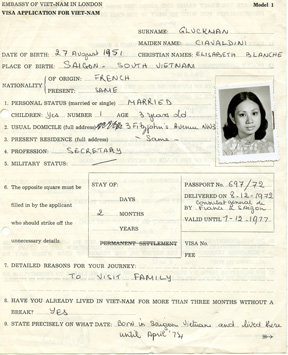 EMBASSY OF VIET-NAM IN LONDON
Model 1
VISA APPLICATION FOR VIET-NAM
SURNAME: GLUCKMAN
MAIDEN NAME: CIAVALDINI
DATE OF BIRTH: 27 August 1951 CHRISTIAN NAMES: ELISABETH BLANCHE
PLACE OF BIRTH: SAIGON - SOUTH VIETNAM
NATIONALITY
OF ORIGIN: FRENCH
PRESENT: SAME
1. PERSONAL STATUS (married or single) MARRIED
CHILDREN: Yes NUMBER 1 AGE 3 years old
2. USUAL DOMICILE (full address) 3 Fitzjohn's Avenue NW3
3. PRESENT RESIDENCE (full address) - Same -
4. PROFESSION: SECRETARY
5. MILITARY STATUS:
6. The opposite square must be
filled in by the applicant
who should strike off the
unnecessary details.
STAY OF:
DAYS
2 MONTHS
YEARS
PERMANENT SETTLEMENT
PASSPORT No. 697/72
DELIVERED ON 8-12-1972
BY Consulat général de France à Saigon
VALID UNTIL 7-12-1977
VISA No.
FEE
7. DETAILED REASONS FOR YOUR JOURNEY:
TO VISIT FAMILY
8. HAVE YOU ALREADY LIVED IN VIET-NAM FOR MORE THAN THREE MONTHS WITHOUT A
BREAK? YES
9. STATE PRECISELY ON WHAT DATE: Born in Saigon Vietnam and lived there
until April '74